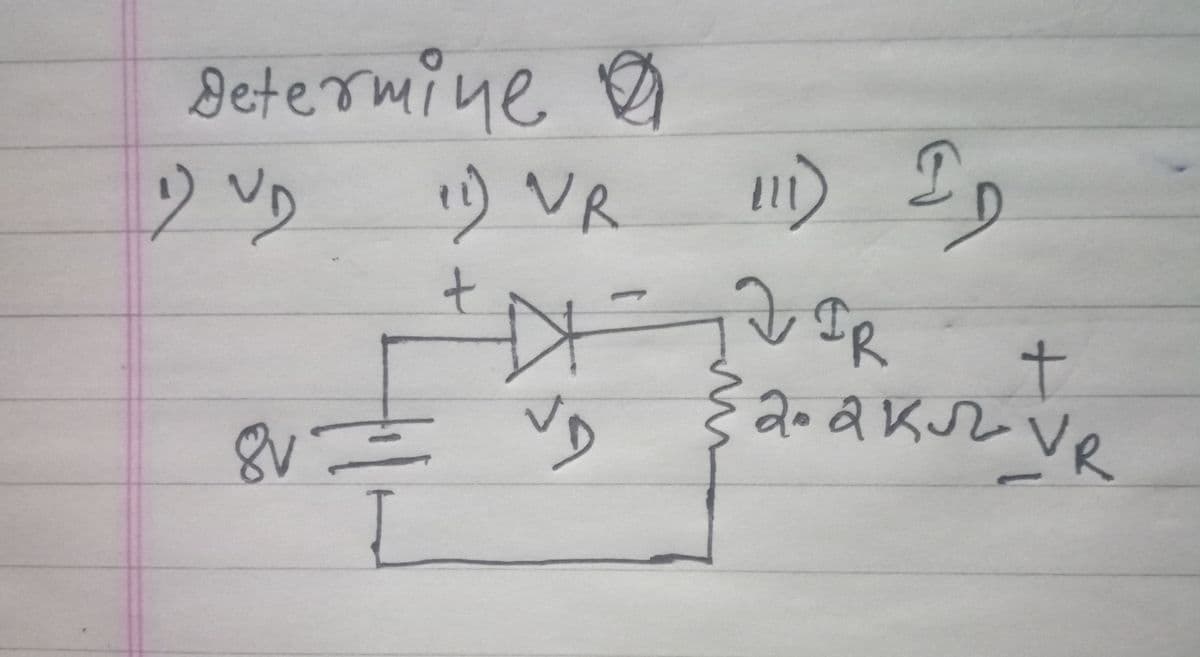 Determine
1) VD 11) VR 111) ID
+ - IR +
8V VD 2.2KΩ VR
-